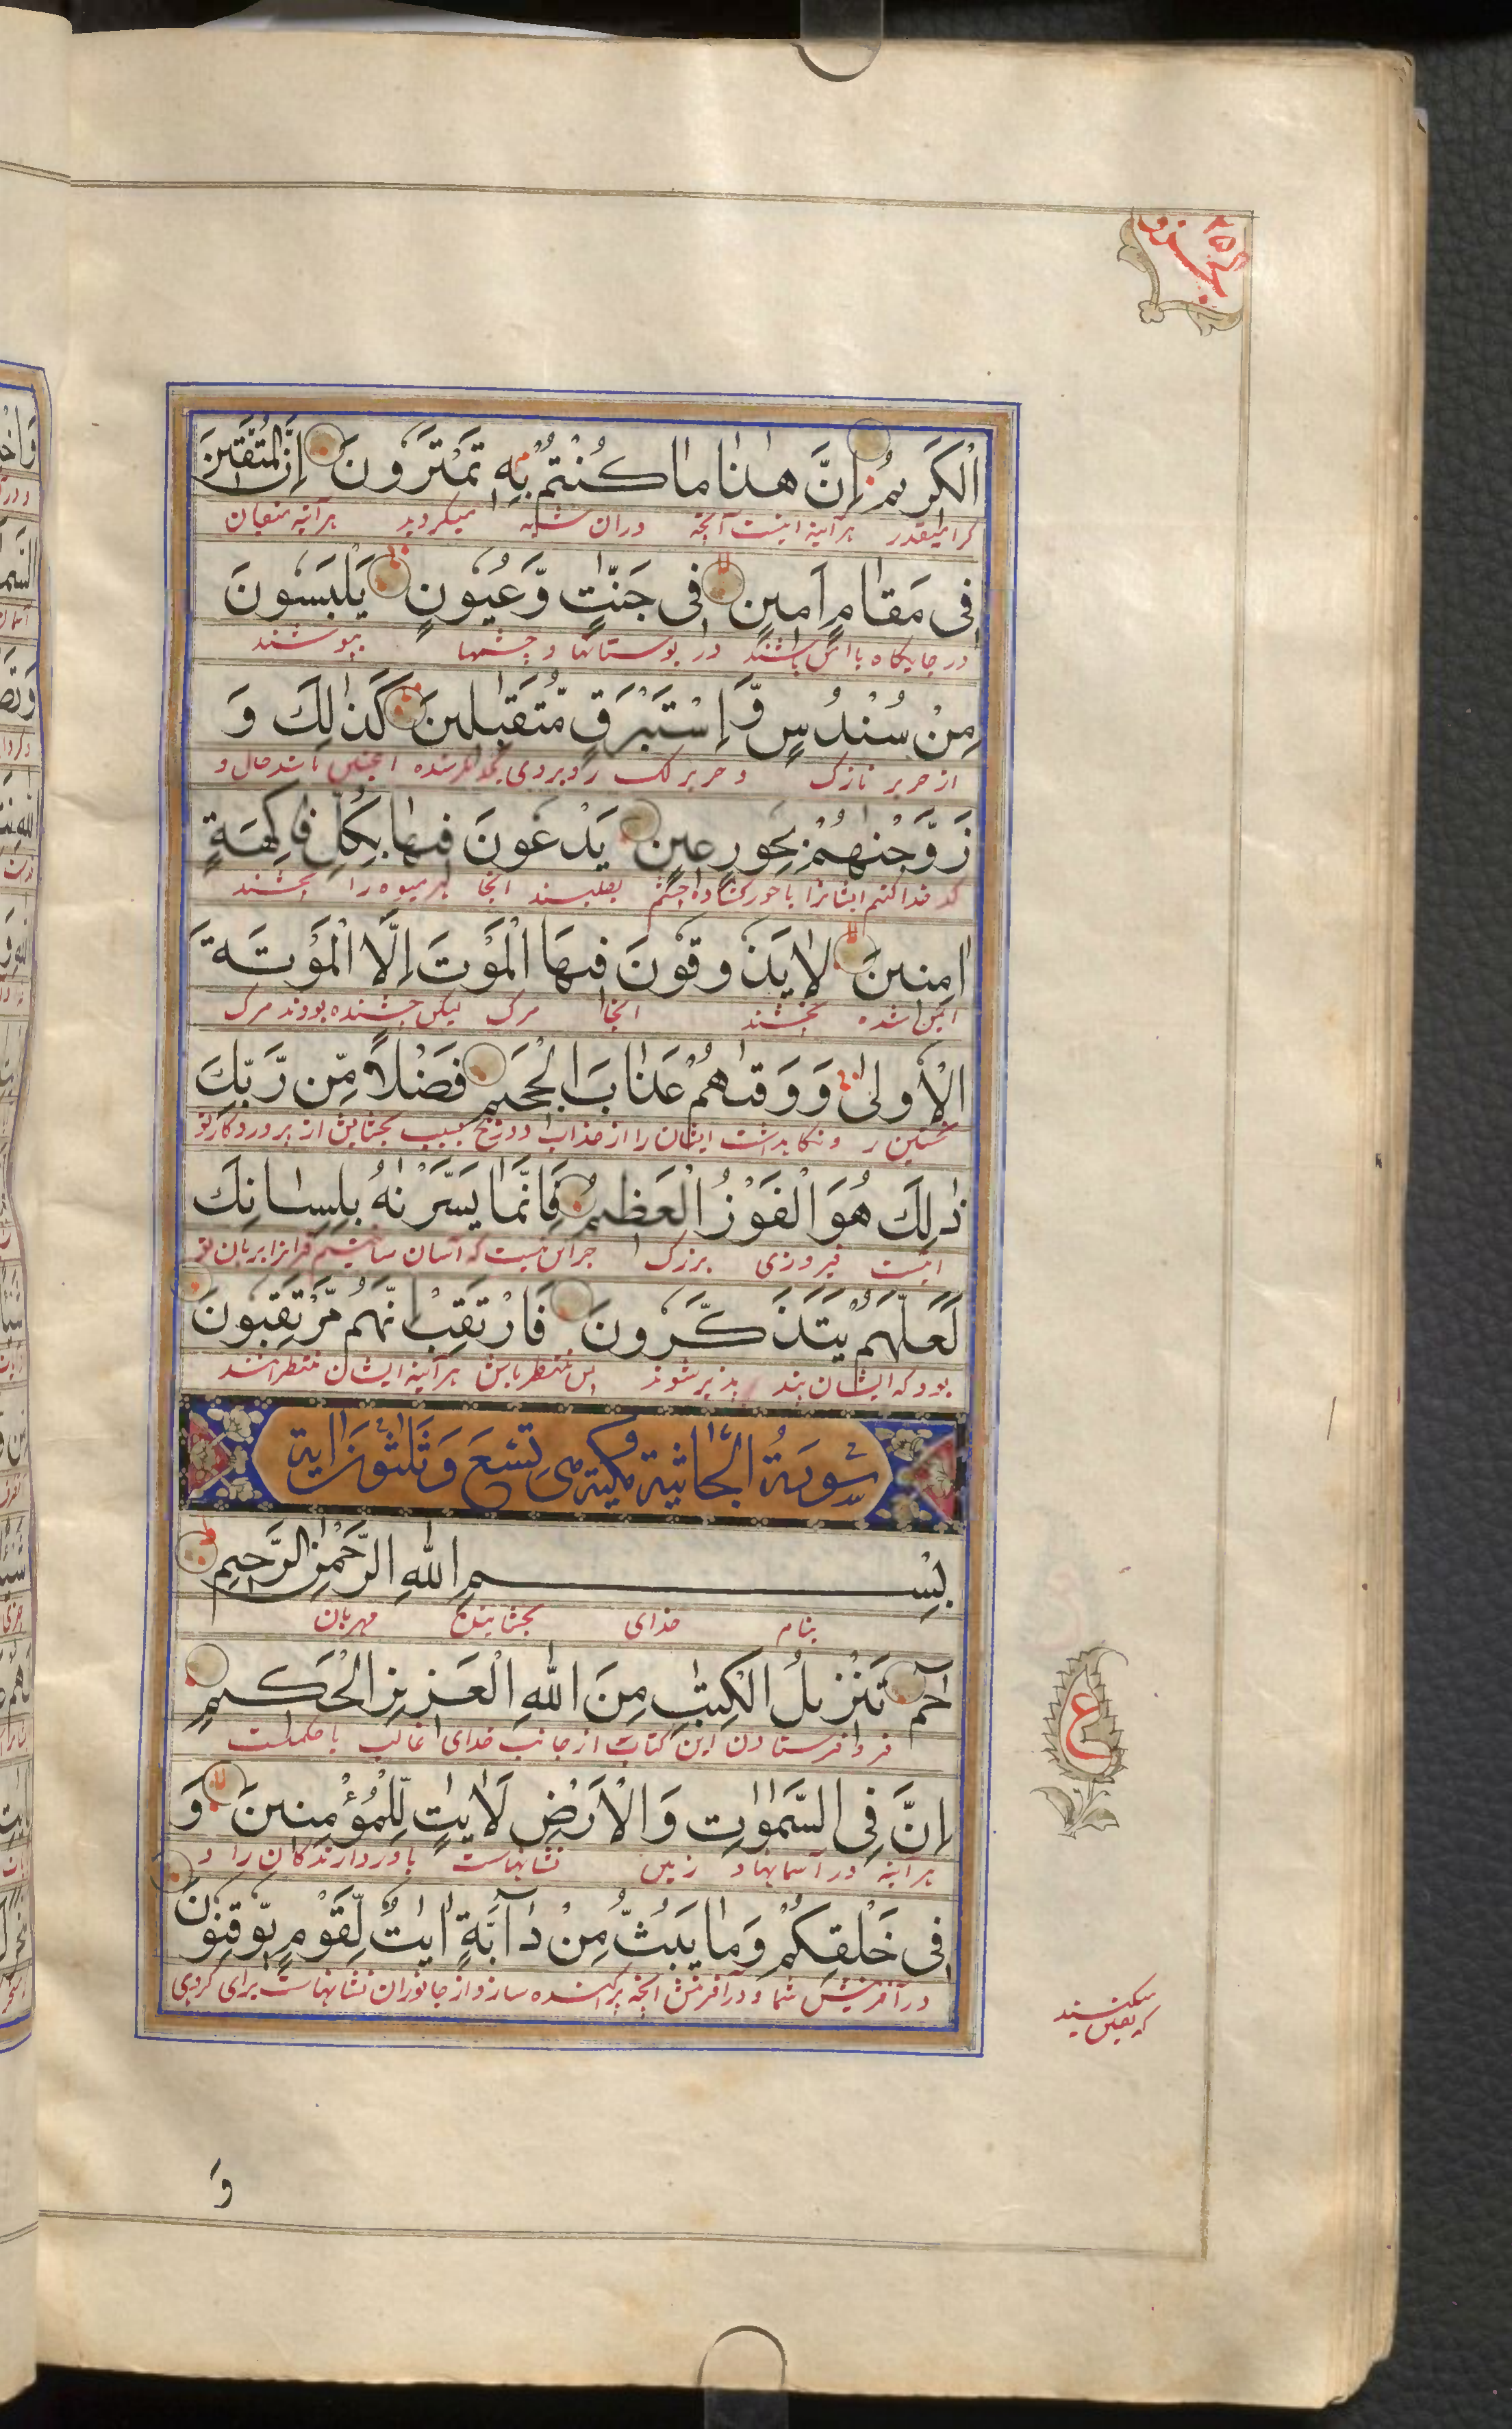 الْكَرِيمُ اِنَّ هٰذَا مَا كُنْتُمْ بِهٖ تَمْتَرُونَ اِنَّ الْمُتَّقِينَ
هرآینه اینست آنچه دران شبه میکردید هرآینه متقیان
فِى مَقَامٍ اَمِينٍ فِى جَنّٰتٍ وَّعُيُونٍ يَلْبَسُونَ
در جایگاه باامن باشند در بوستانها و چشمها بپوشند
مِنْ سُنْدُسٍ وَّاِسْتَبْرَقٍ مُّتَقٰبِلِينَ كَذٰلِكَ وَ
از حریر نازک و حریر لک روبروی یکدیگر شده اینچنین باشد حال و
زَوَّجْنٰهُمْ بِحُورٍ عِينٍ يَدْعُونَ فِيهَا بِكُلِّ فَاكِهَةٍ
کدخدا کنیم ایشانرا با حور گشاده چشم بطلبند انجا هر میوه را
اٰمِنِينَ لَا يَذُوقُونَ فِيهَا الْمَوْتَ اِلَّا الْمَوْتَةَ
ایمن شده نچشند انجا مرگ لیکن چشنده بودند مرگ
الْاُولٰى وَوَقٰهُمْ عَذَابَ الْجَحِيمِ فَضْلًا مِّنْ رَّبِّكَ
نخستین ر و نگاهداشت ایشان را از عذاب دوزخ بسبب بخشایش از پروردگار تو
ذٰلِكَ هُوَ الْفَوْزُ الْعَظِيمُ فَاِنَّمَا يَسَّرْنٰهُ بِلِسَانِكَ
اینست فیروزی بزرگ جز این نیست که آسان ساختیم قرانرا بزبان تو
لَعَلَّهُمْ يَتَذَكَّرُونَ فَارْتَقِبْ اِنَّهُمْ مُّرْتَقِبُونَ
بود که ایشان پند پذیر شوند پس منتظر باش هرآینه ایشان منتظرانند
سُورَةُ الْجَاثِيَةِ مَكِّيَّة وَهِىَ تِسْعَ وَثَلٰثُونَ اٰيَة
بِسْمِ اللهِ الرَّحْمٰنِ الرَّحِيمِ
بنام خدای بخشاینده مهربان
حٰمٓ تَنْزِيلُ الْكِتٰبِ مِنَ اللهِ الْعَزِيزِ الْحَكِيمِ
فروفرستادن این کتاب از جانب خدای غالب با حکمتست
اِنَّ فِى السَّمٰوٰتِ وَالْاَرْضِ لَاٰيٰتٍ لِّلْمُؤْمِنِينَ وَ
هرآینه در آسمانها و زمین نشانهاست باوردارندگان را و
فِى خَلْقِكُمْ وَمَا يَبُثُّ مِنْ دَآبَّةٍ اٰيٰتٌ لِّقَوْمٍ يُّوقِنُونَ
در آفرینش شما و در آفرینش انچه پراکنده سازد از جانوران نشانهاست برای گروهی
که یقین میکنند
ع
وَ